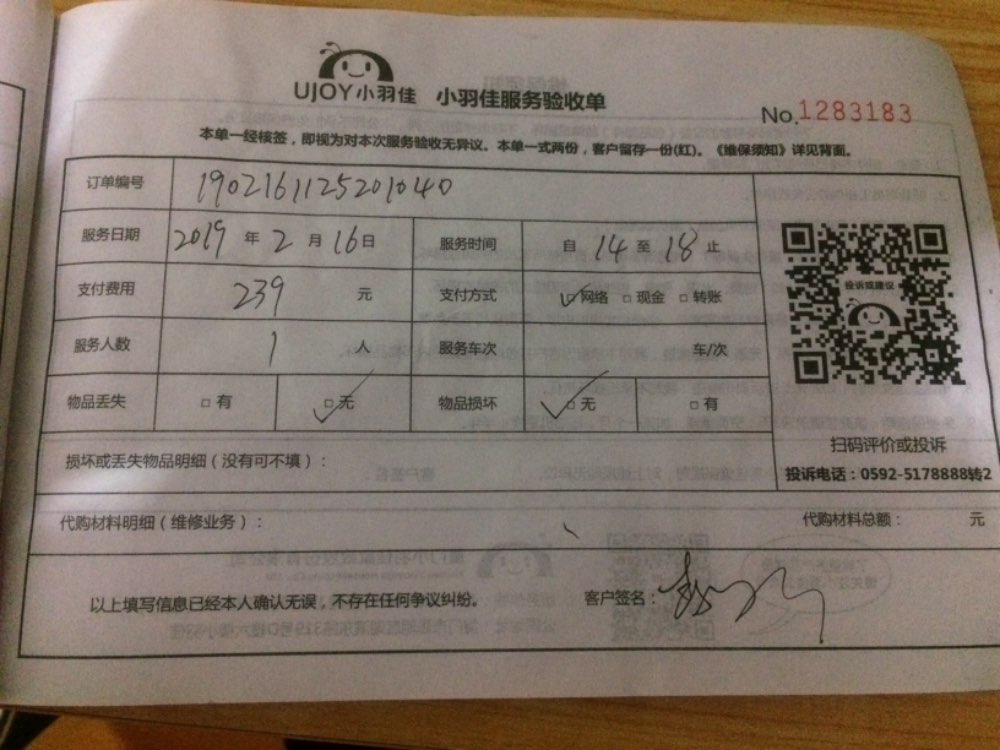 UJOY小羽佳 小羽佳服务验收单
No.1283183
本单一经核签，即视为对本次服务验收无异议。本单一式两份，客户留存一份(红)。《维保须知》详见背面。
订单编号 1902161125201040
服务日期 2019 年 2 月 16 日 服务时间 自 14 至 18 止
支付费用 239 元 支付方式 ☑网络 □现金 □转账
投诉或建议
服务人数 1 人 服务车次 车/次
物品丢失 □有 ☑无 物品损坏 ☑无 □有
扫码评价或投诉
损坏或丢失物品明细（没有可不填）：
投诉电话：0592-5178888转2
代购材料明细（维修业务）： 代购材料总额： 元
以上填写信息已经本人确认无误，不存在任何争议纠纷。 客户签名：